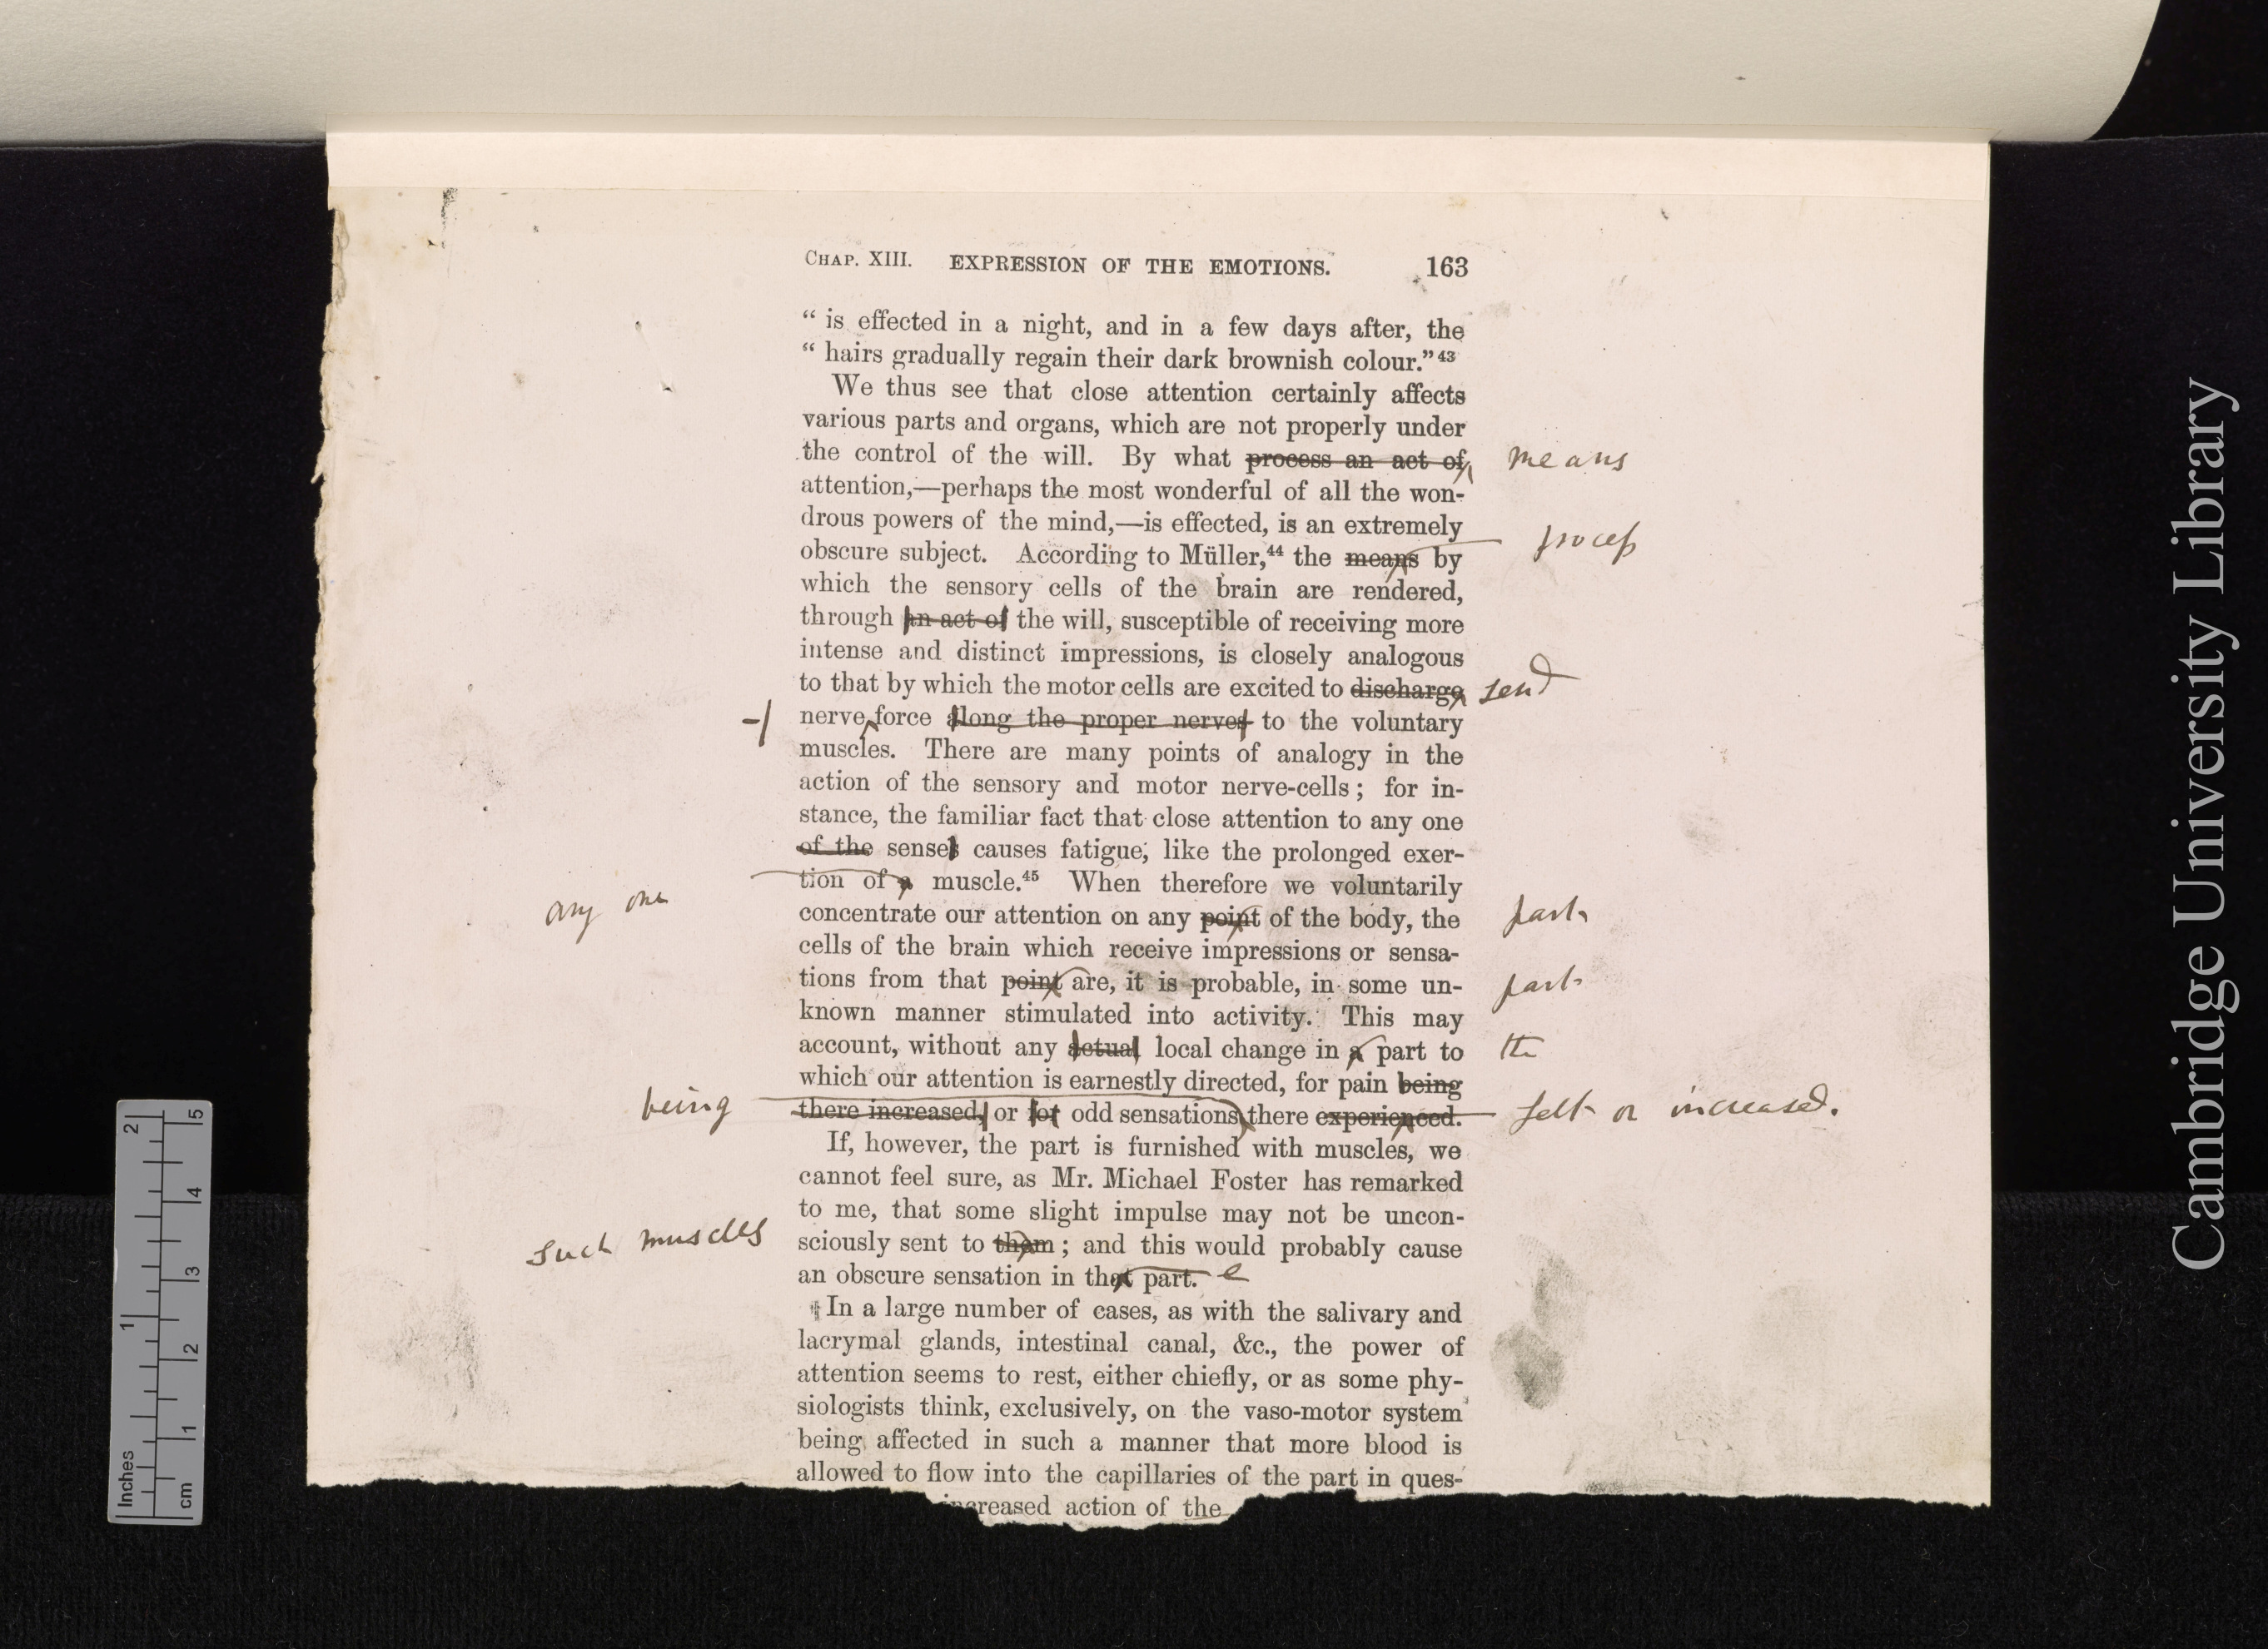 CHAP. XIII. EXPRESSION OF THE EMOTIONS. 163
“ is effected in a night, and in a few days after, the
“ hairs gradually regain their dark brownish colour.” 43
We thus see that close attention certainly affects
various parts and organs, which are not properly under
the control of the will. By what process an act of means
attention,—perhaps the most wonderful of all the won-
drous powers of the mind,—is effected, is an extremely
obscure subject. According to Müller,44 the means by process
which the sensory cells of the brain are rendered,
through an act of the will, susceptible of receiving more
intense and distinct impressions, is closely analogous
to that by which the motor cells are excited to discharge send
-| nerve force along the proper nerves to the voluntary
muscles. There are many points of analogy in the
action of the sensory and motor nerve-cells; for in-
stance, the familiar fact that close attention to any one
of the senses causes fatigue, like the prolonged exer-
any one tion of a muscle.45 When therefore we voluntarily
concentrate our attention on any point of the body, the part
cells of the brain which receive impressions or sensa-
tions from that point are, it is probable, in some un- part
known manner stimulated into activity. This may
account, without any actual local change in a part to the
which our attention is earnestly directed, for pain being
being there increased, or for odd sensations there experienced. felt or increased.
If, however, the part is furnished with muscles, we
cannot feel sure, as Mr. Michael Foster has remarked
to me, that some slight impulse may not be uncon-
such muscles sciously sent to them; and this would probably cause
an obscure sensation in that part. e
In a large number of cases, as with the salivary and
lacrymal glands, intestinal canal, &c., the power of
attention seems to rest, either chiefly, or as some phy-
siologists think, exclusively, on the vaso-motor system
being affected in such a manner that more blood is
allowed to flow into the capillaries of the part in ques-
increased action of the
Inches 1 2
cm 1 2 3 4 5
Cambridge University Library